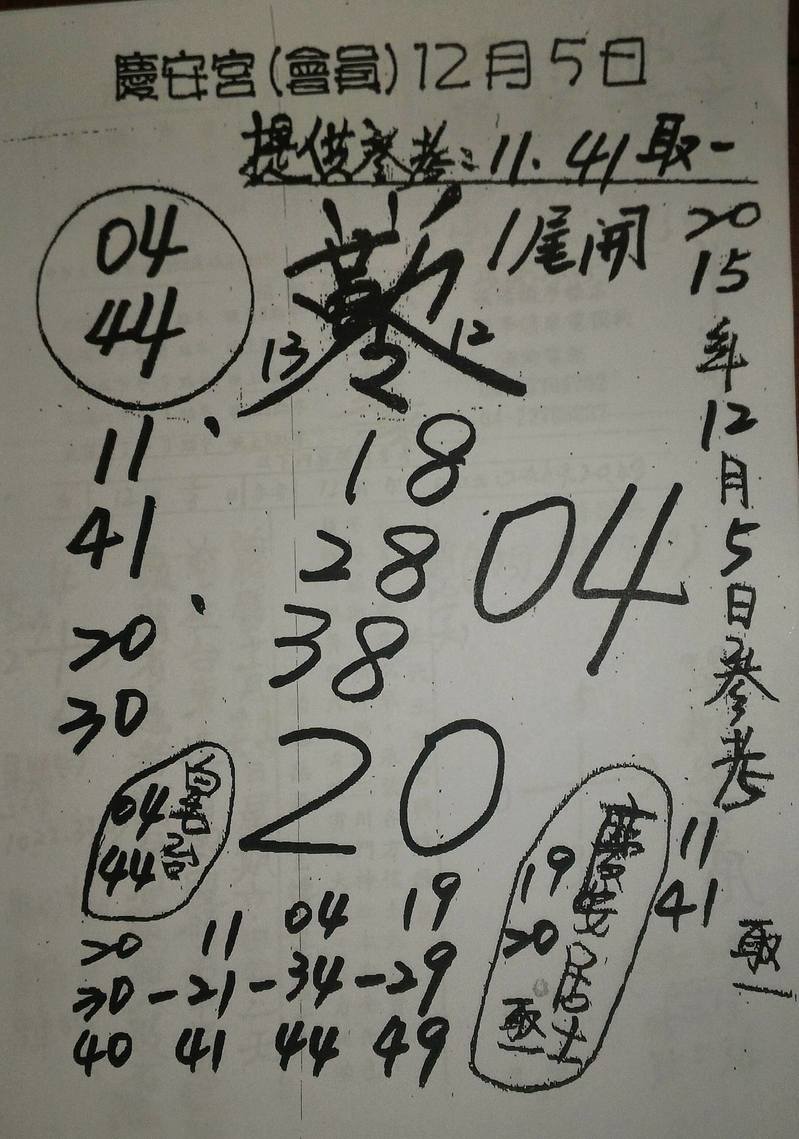 慶安宮(會員)12月5日
提供參考:11.41取一
04
44
1尾開
13
12
2
2015年12月5日參考
11
41
取一
11
41
20
30
18
28
38
04
20
04
44
慶安居士
19
20
取一
20 11 04 19
30-21-34-29
40 41 44 49